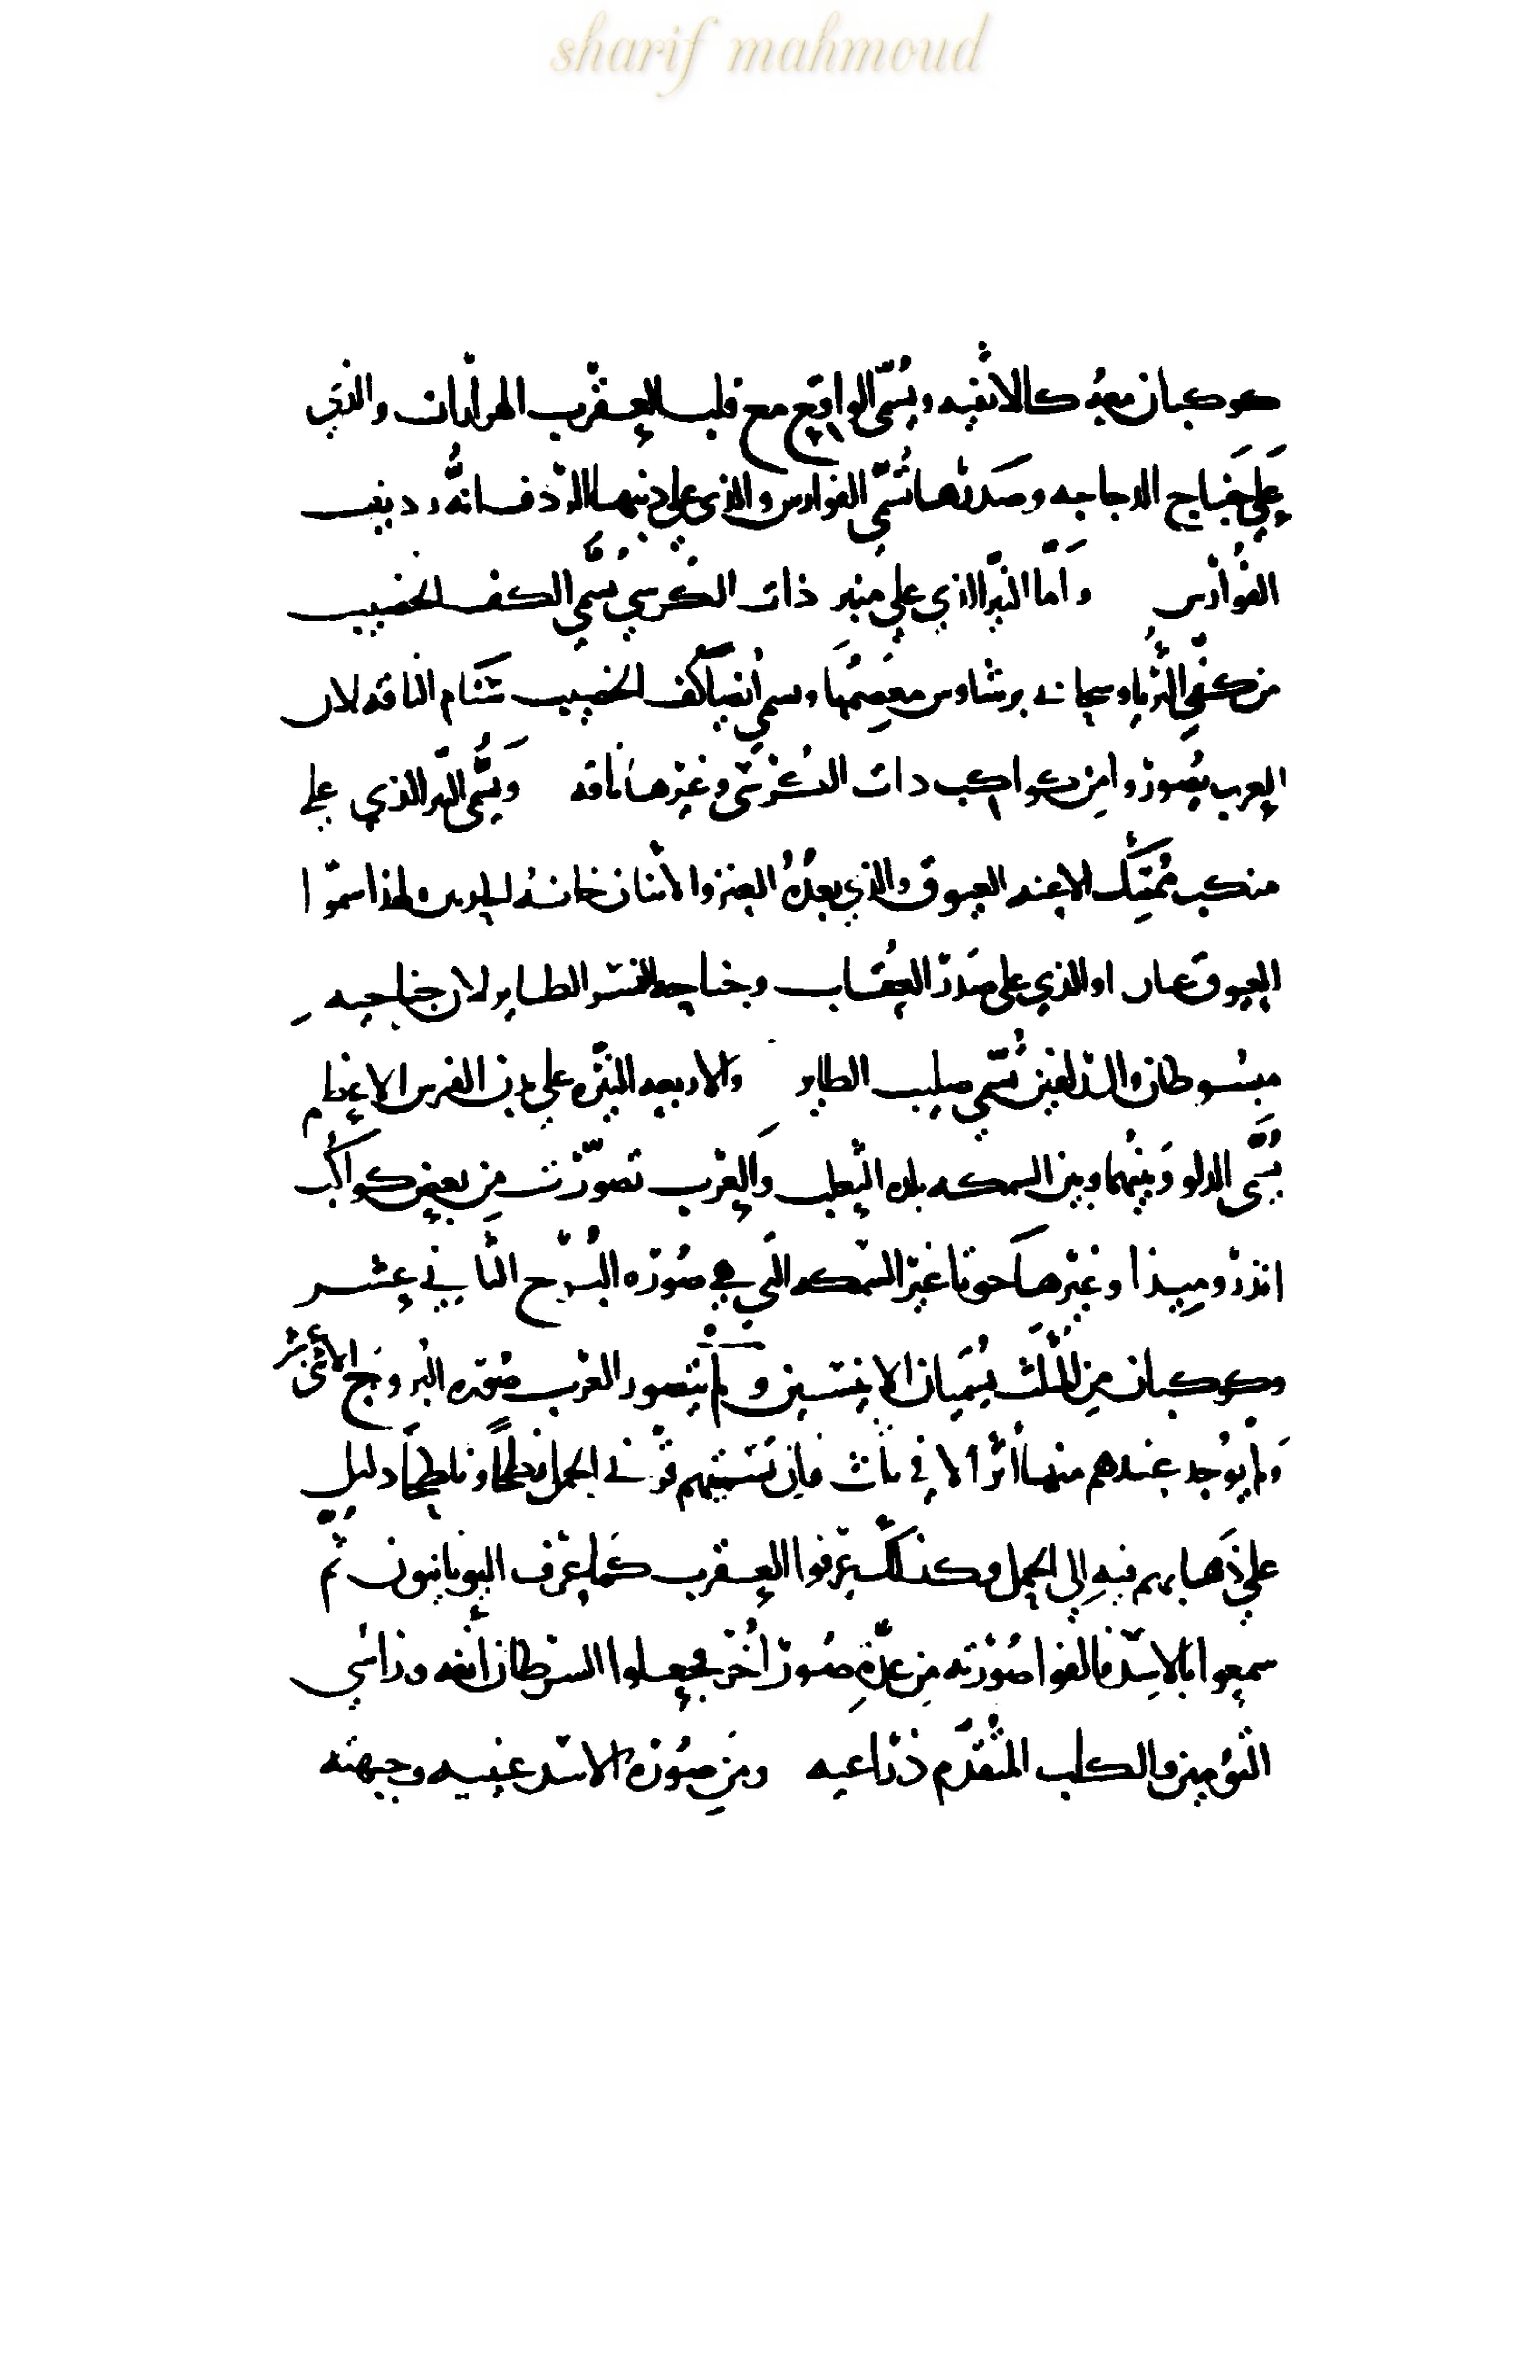 sharif mahmoud
كوكبان معه كالاثفيه ويُسمّى الواقع مع قلب العقرب الهراران والذي
على جَناح الدجاجه وصَدرها تُسمّى الفوارس والذى على ذنبها الردف لانه رديف
الفوارس وأمّا النيّر الذي على منبر ذات الكرسي يُسمّى الكف الخضيب
من كفّي الثريا وجانب برشاوس معصَمُها وسمى أيضا كف الخضيب سَنام الناقه لان
العرب يصور وا من كواكب ذات الكرسى وغيرها ناقه ويُسَمّى النير الذي على
منكب مُمسك الاعنه العيوق والذي بعدهُ العنز والاثنان خلفهُ الجديين ولهذا سموا
العيوق عنازا والذي على صَدر العُقاب وجناحيه النسر الطاير لان جناحيه
مبسُوطان والدلفين تُسمّى صليب الطاير والاربعه النيّره على بدن الفرس الاعظم
يُسمّى الدلو وَبينهُما وبين السمكه بلده الثعلب وَالعَرب تصوّرت من بعض كواكب
اندرومِيدا وغيرها حوتا غير السّمكه التي هي صُورَه البُرج الثاني عشر
وكوكبان من المثلث يُسمَيان الانيسَين ولم يتصور العَرب صُوَره البروج الاثنى عشر
وَلم يُوجد عندهم منها أثر الا في ثلث فان تسميتهم قرني الحمل نطحًا وناطحًا دليل
على ذَهابهم فيهِ إلى الحمل وكذلك عرفوا العقرب كما عَرف اليونانيون ثم
سمعوا بالاسد فالفوا صُورَته مِن عدّةِ صُوَر أُخر فجعلوا السرطان أنفه وراسَي
التوءمين والكلب المتقَدّم ذراعيه ومن صُورَة الاسد عينيه وجبهته